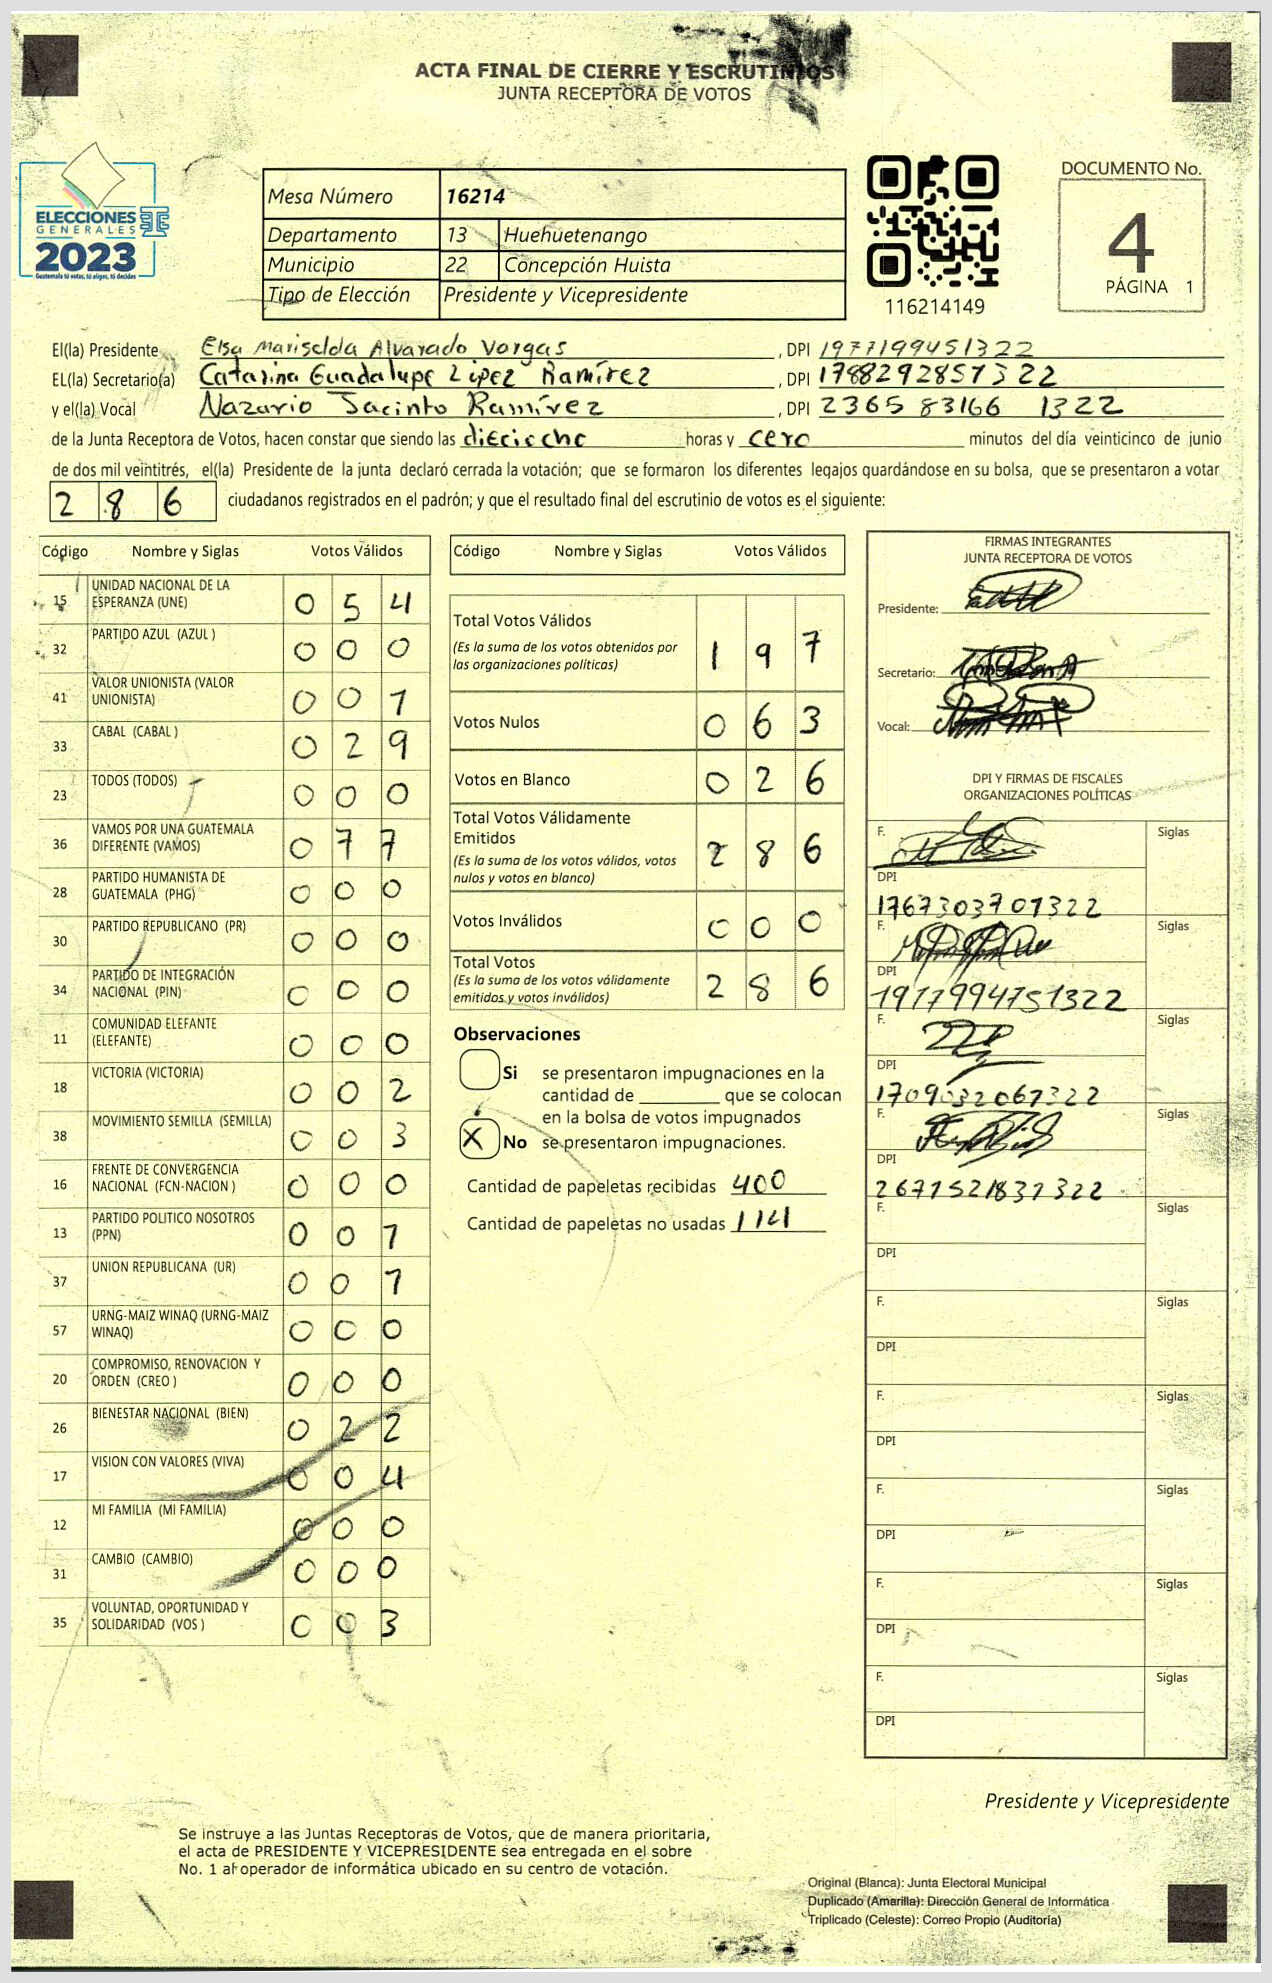 ACTA FINAL DE CIERRE Y ESCRUTINIOS
JUNTA RECEPTORA DE VOTOS
ELECCIONES
GENERALES
2023
Guatemala tú votas, tú eliges, tú decides
Mesa Número 16214
Departamento 13 Huehuetenango
Municipio 22 Concepción Huista
Tipo de Elección Presidente y Vicepresidente
116214149
DOCUMENTO No.
4
PÁGINA 1
El(la) Presidente Elsa Mariselda Alvarado Vargas, DPI 1977199451322
EL(la) Secretario(a) Catarina Guadalupe López Ramírez, DPI 1788292851322
y el(la) Vocal Nazario Jacinto Ramírez, DPI 2365 83166 1322
de la Junta Receptora de Votos, hacen constar que siendo las dieciocho horas y cero minutos del día veinticinco de junio
de dos mil veintitrés, el(la) Presidente de la junta declaró cerrada la votación; que se formaron los diferentes legajos quardándose en su bolsa, que se presentaron a votar
286 ciudadanos registrados en el padrón; y que el resultado final del escrutinio de votos es el siguiente:
Código Nombre y Siglas Votos Válidos
15 UNIDAD NACIONAL DE LA ESPERANZA (UNE) 0 5 4
32 PARTIDO AZUL (AZUL ) 0 0 0
41 VALOR UNIONISTA (VALOR UNIONISTA) 0 0 1
33 CABAL (CABAL ) 0 2 9
23 TODOS (TODOS) 0 0 0
36 VAMOS POR UNA GUATEMALA DIFERENTE (VAMOS) 0 7 7
28 PARTIDO HUMANISTA DE GUATEMALA (PHG) 0 0 0
30 PARTIDO REPUBLICANO (PR) 0 0 0
34 PARTIDO DE INTEGRACIÓN NACIONAL (PIN) 0 0 0
11 COMUNIDAD ELEFANTE (ELEFANTE) 0 0 0
18 VICTORIA (VICTORIA) 0 0 2
38 MOVIMIENTO SEMILLA (SEMILLA) 0 0 3
16 FRENTE DE CONVERGENCIA NACIONAL (FCN-NACION ) 0 0 0
13 PARTIDO POLITICO NOSOTROS (PPN) 0 0 1
37 UNION REPUBLICANA (UR) 0 0 1
57 URNG-MAIZ WINAQ (URNG-MAIZ WINAQ) 0 0 0
20 COMPROMISO, RENOVACION Y ORDEN (CREO ) 0 0 0
26 BIENESTAR NACIONAL (BIEN) 0 2 2
17 VISION CON VALORES (VIVA) 0 0 4
12 MI FAMILIA (MI FAMILIA) 0 0 0
31 CAMBIO (CAMBIO) 0 0 0
35 VOLUNTAD, OPORTUNIDAD Y SOLIDARIDAD (VOS ) 0 0 3
Código Nombre y Siglas Votos Válidos
Total Votos Válidos 1 9 7
(Es la suma de los votos obtenidos por
las organizaciones políticas)
Votos Nulos 0 6 3
Votos en Blanco 0 2 6
Total Votos Válidamente
Emitidos 2 8 6
(Es la suma de los votos válidos, votos
nulos y votos en blanco)
Votos Inválidos 0 0 0
Total Votos 2 8 6
(Es la suma de los votos válidamente
emitidos y votos inválidos)
Observaciones
Si se presentaron impugnaciones en la
cantidad de ________ que se colocan
en la bolsa de votos impugnados
X No se presentaron impugnaciones.
Cantidad de papeletas recibidas 400
Cantidad de papeletas no usadas 114
FIRMAS INTEGRANTES
JUNTA RECEPTORA DE VOTOS
Presidente:
Secretario:
Vocal:
DPI Y FIRMAS DE FISCALES
ORGANIZACIONES POLÍTICAS
F. Siglas
DPI
1767303701322
F. Siglas
DPI
1977994751322
F. Siglas
DPI
1709032061322
F. Siglas
DPI
2671521831322
F. Siglas
DPI
F. Siglas
DPI
F. Siglas
DPI
F. Siglas
DPI
F. Siglas
DPI
F. Siglas
DPI
Presidente y Vicepresidente
Se instruye a las Juntas Receptoras de Votos, que de manera prioritaria,
el acta de PRESIDENTE Y VICEPRESIDENTE sea entregada en el sobre
No. 1 al operador de informática ubicado en su centro de votación.
Original (Blanca): Junta Electoral Municipal
Duplicado (Amarilla): Dirección General de Informática
Triplicado (Celeste): Correo Propio (Auditoría)